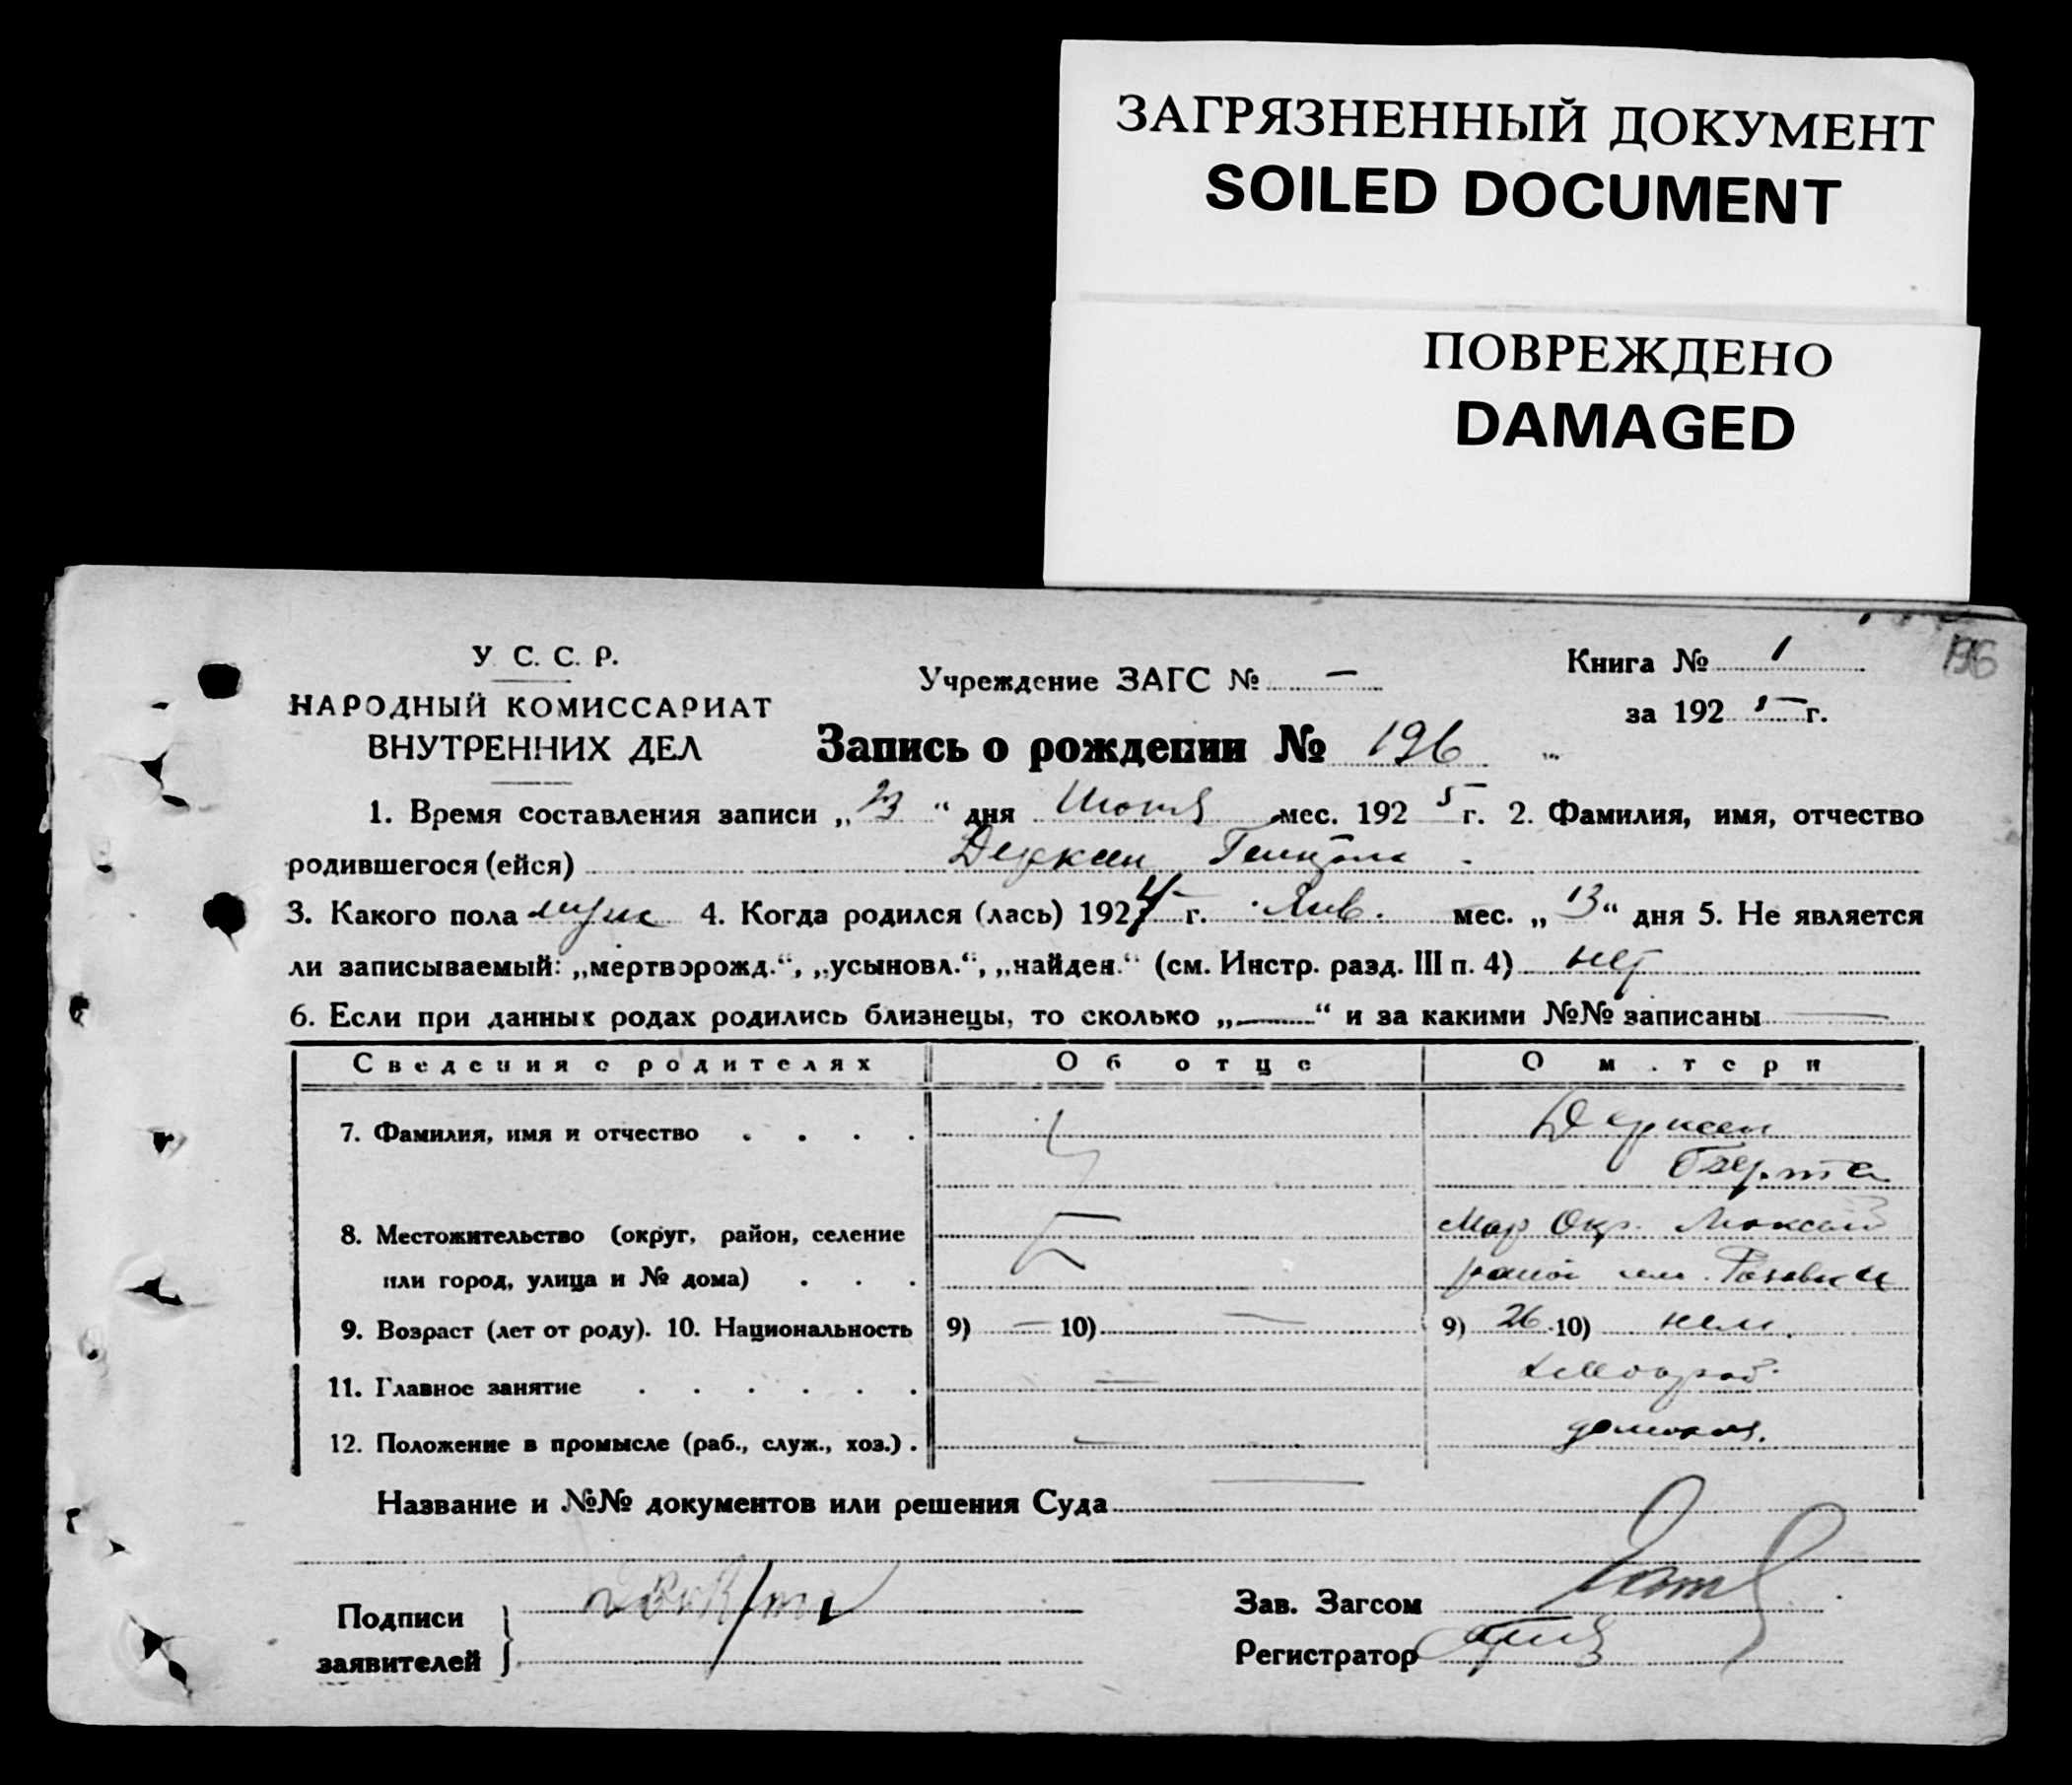 ЗАГРЯЗНЕННЫЙ ДОКУМЕНТ
SOILED DOCUMENT
ПОВРЕЖДЕНО
DAMAGED
196
У. С. С. Р.
НАРОДНЫЙ КОМИССАРИАТ
ВНУТРЕННИХ ДЕЛ
Учреждение ЗАГС № —
Книга № 1
за 1925 г.
Запись о рождении № 196
1. Время составления записи „23“ дня мес. 1925 г. 2. Фамилия, имя, отчество
родившегося (ейся) Дерксен
3. Какого пола муж 4. Когда родился (лась) 1924 г. Янв. мес. „13“ дня 5. Не является
ли записываемый: „мертворожд.“, „усыновл.“, „найден.“ (см. Инстр. разд. III п. 4) нет
6. Если при данных родах родились близнецы, то сколько „—“ и за какими №№ записаны —
Сведения о родителях Об отце О м.тери
7. Фамилия, имя и отчество . . . . Дерксен
Берта
8. Местожительство (округ, район, селение Мар Окр. Люксем
или город, улица и № дома) . . . район
9. Возраст (лет от роду). 10. Национальность 9) — 10) — 9) 26 10) нем.
11. Главное занятие . . . . . . —
12. Положение в промысле (раб., служ., хоз.) . — домохоз.
Название и №№ документов или решения Суда —
Подписи
заявителей
Зав. Загсом
Регистратор